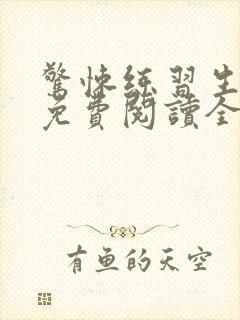 驚悚练習生
免費閱讀全
有魚的天空